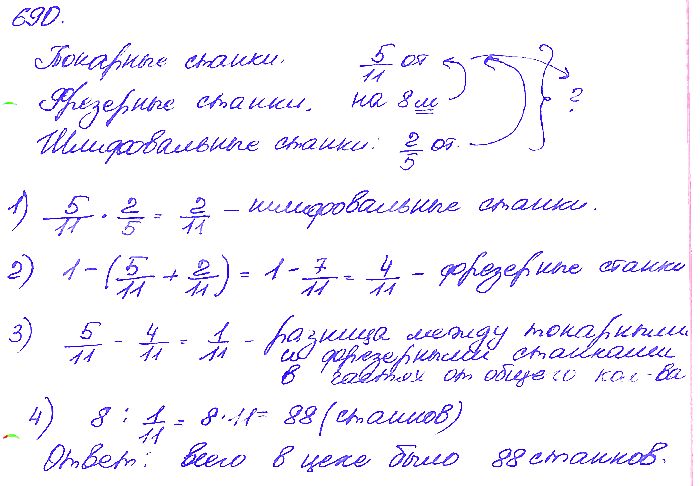 690.
Токарные станки. 5/11 от
Фрезерные станки. на 8 м } ?
Шлифовальные станки: 2/5 от.
1) 5/11 · 2/5 = 2/11 – шлифовальные станки.
2) 1 – (5/11 + 2/11) = 1 – 7/11 = 4/11 – фрезерные станки
3) 5/11 – 4/11 = 1/11 – разница между токарными
и фрезерными станками
в частях от общего кол-ва
4) 8 : 1/11 = 8 · 11 = 88 (станков)
Ответ: всего в цехе было 88 станков.